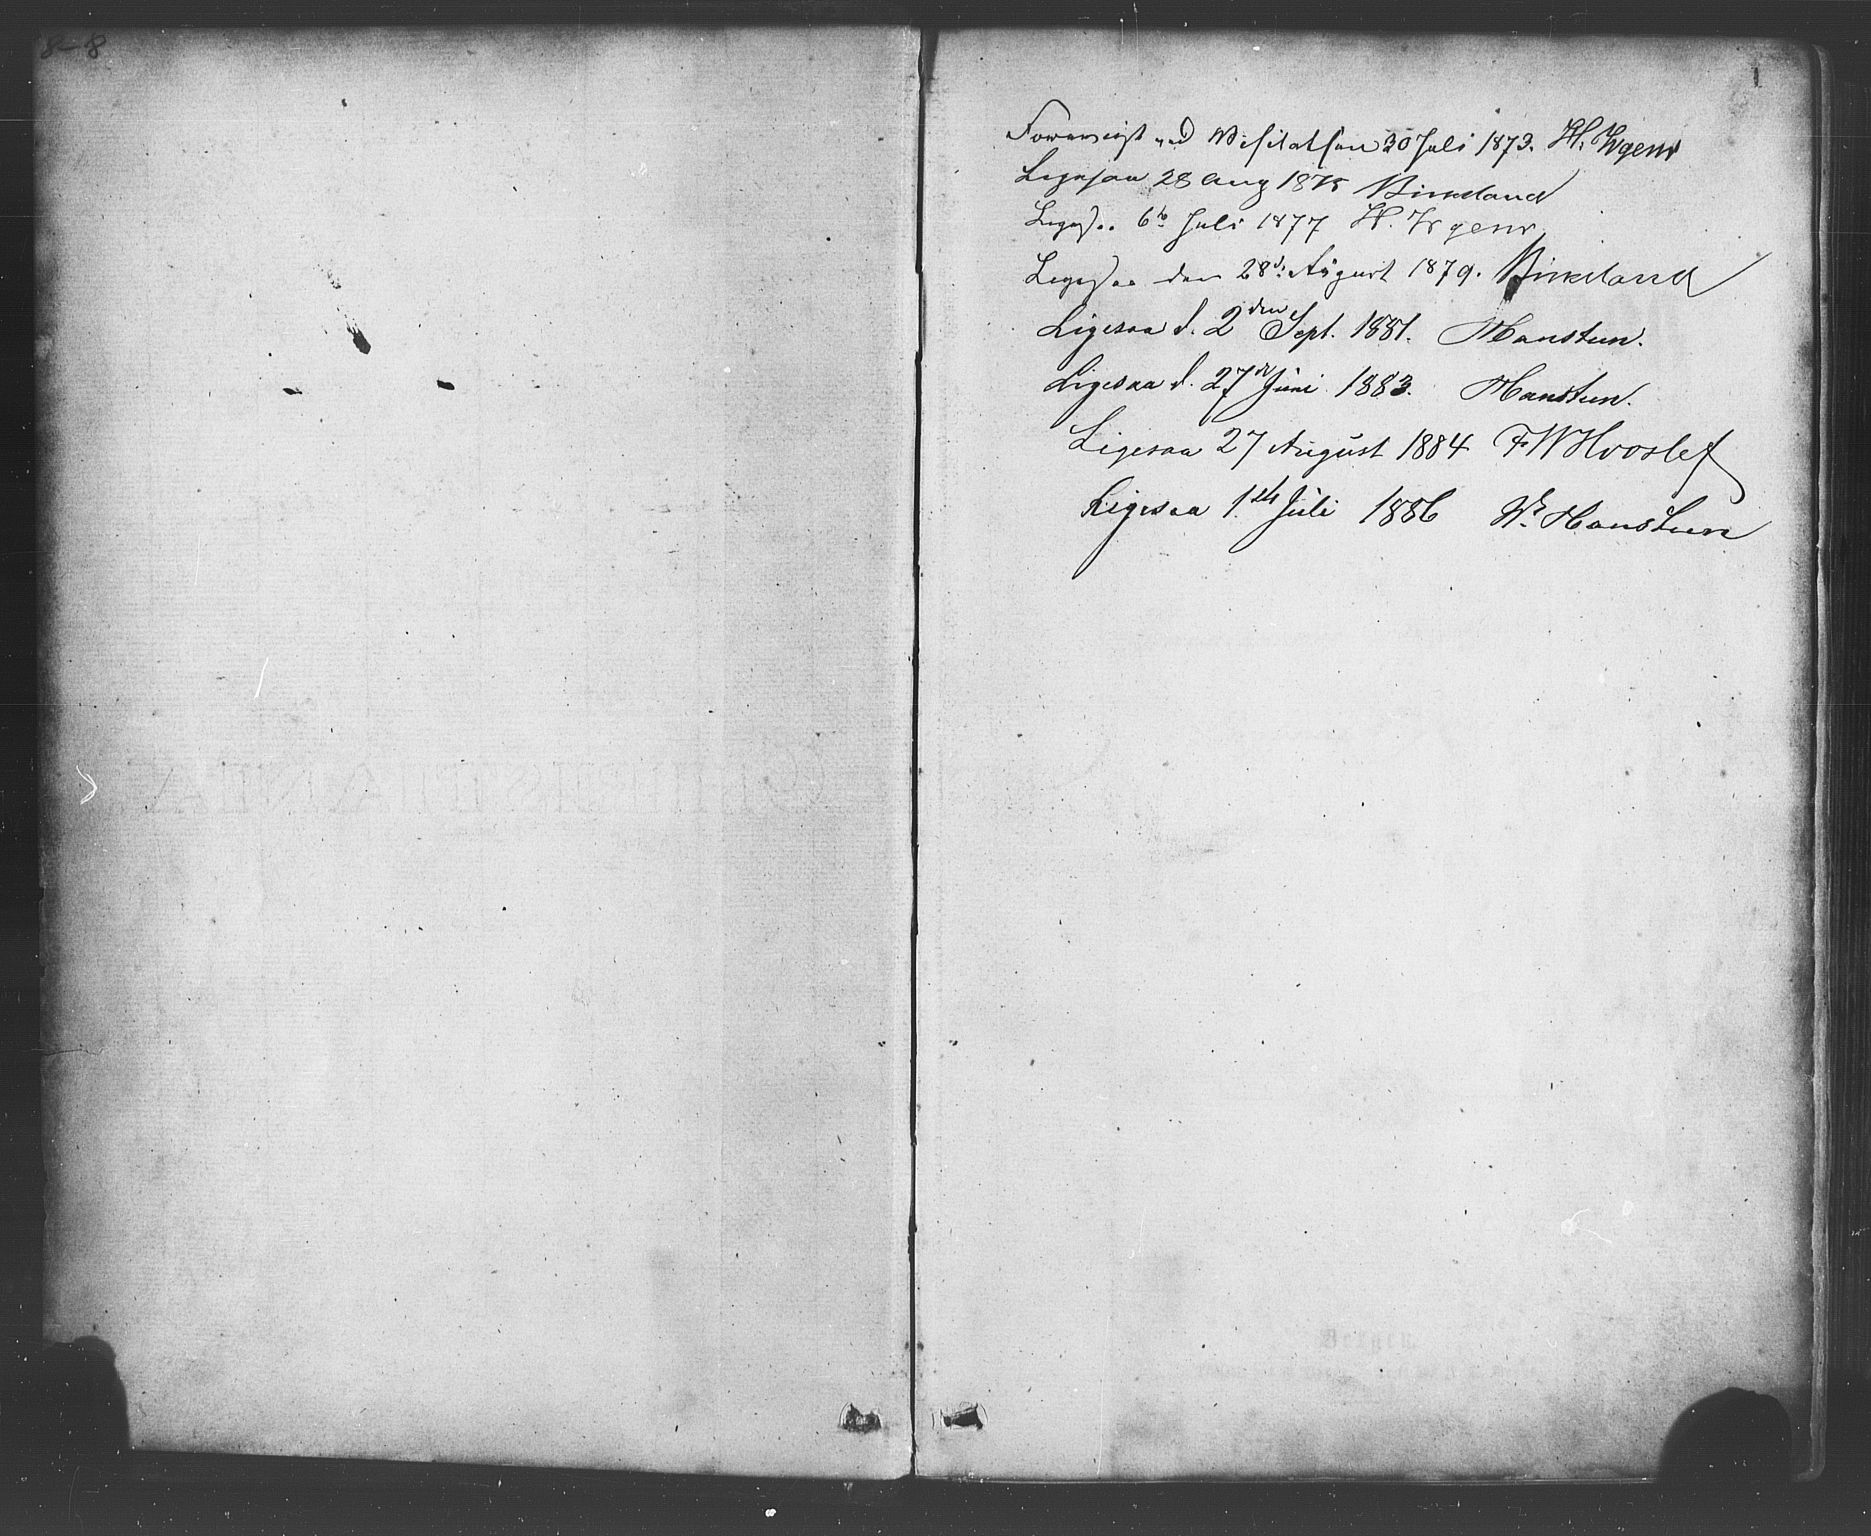 8-8
1
Forevist ved Visitatsen 30 Juli 1873. H. Irgens
Ligesaa 28 Aug 1875 Birkeland
Ligesaa 6te Juli 1877 H. Irgens
Ligesaa den 28de August 1879. Birkeland
Ligesaa d. 2den Sept. 1881. Hansteen.
Ligesaa d. 27de Juni 1883. Hansteen.
Ligesaa 27 August 1884 F W Hvoslef
Ligesaa 1ste Juli 1886 Wm Hansteen
CHRISTIANIA
Bergen.